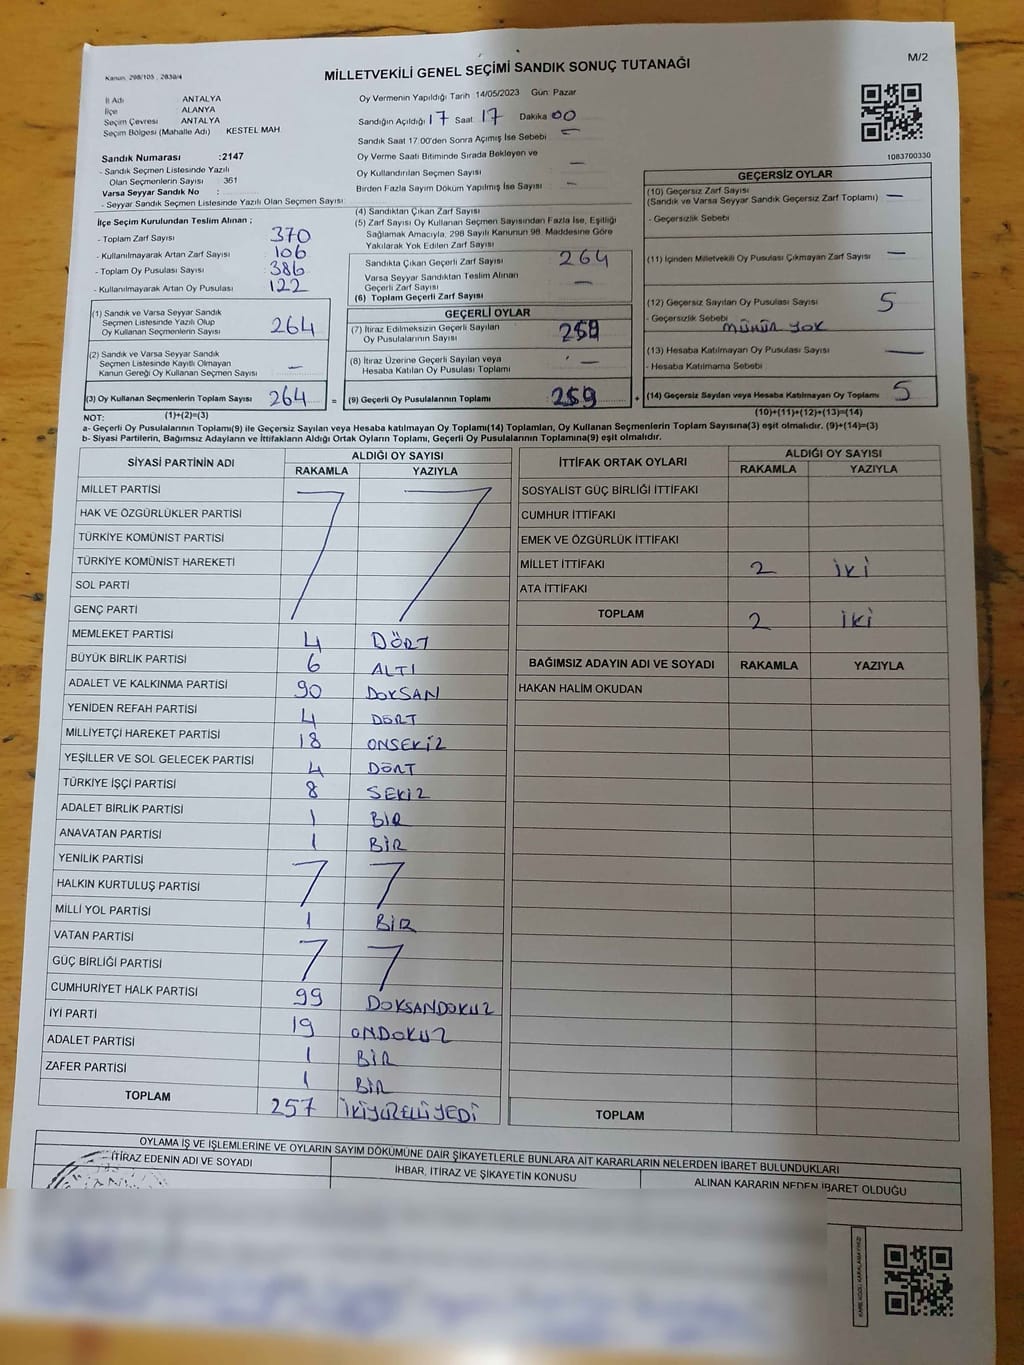 Kanun: 298/105 , 2839/4
M/2
MİLLETVEKİLİ GENEL SEÇİMİ SANDIK SONUÇ TUTANAĞI
İl Adı : ANTALYA
İlçe : ALANYA
Seçim Çevresi : ANTALYA
Seçim Bölgesi (Mahalle Adı) KESTEL MAH.
Oy Vermenin Yapıldığı Tarih 14/05/2023 Gün: Pazar
Sandığın Açıldığı 17 Saat 17 Dakika 00
Sandık Saat 17.00'den Sonra Açımış İse Sebebi —
Oy Verme Saati Bitiminde Sırada Bekleyen ve
Oy Kullandırılan Seçmen Sayısı —
Birden Fazla Sayım Döküm Yapılmış İse Sayısı —
1083700330
Sandık Numarası :2147
- Sandık Seçmen Listesinde Yazılı
Olan Seçmenlerin Sayısı : 361
Varsa Seyyar Sandık No :
- Seyyar Sandık Seçmen Listesinde Yazılı Olan Seçmen Sayısı:
İlçe Seçim Kurulundan Teslim Alınan ;
- Toplam Zarf Sayısı 370
- Kullanılmayarak Artan Zarf Sayısı 106
- Toplam Oy Pusulası Sayısı 386
- Kullanılmayarak Artan Oy Pusulası 122
(1) Sandık ve Varsa Seyyar Sandık
Seçmen Listesinde Yazılı Olup
Oy Kullanan Seçmenlerin Sayısı 264
(2) Sandık ve Varsa Seyyar Sandık
Seçmen Listesinde Kayıtlı Olmayan
Kanun Gereği Oy Kullanan Seçmen Sayısı —
(3) Oy Kullanan Seçmenlerin Toplam Sayısı 264 =
(4) Sandıktan Çıkan Zarf Sayısı
(5) Zarf Sayısı Oy Kullanan Seçmen Sayısından Fazla İse, Eşitliği
Sağlamak Amacıyla, 298 Sayılı Kanunun 98. Maddesine Göre
Yakılarak Yok Edilen Zarf Sayısı
Sandıkta Çıkan Geçerli Zarf Sayısı 264
Varsa Seyyar Sandıktan Teslim Alınan
Geçerli Zarf Sayısı —
(6) Toplam Geçerli Zarf Sayısı
GEÇERLİ OYLAR
(7) İtiraz Edilmeksizin Geçerli Sayılan
Oy Pusulasının Sayısı 259
(8) İtiraz Üzerine Geçerli Sayılan veya
Hesaba Katılan Oy Pusulası Toplamı —
(9) Geçerli Oy Pusulalarının Toplamı 259 +
GEÇERSİZ OYLAR
(10) Geçersiz Zarf Sayısı
(Sandık ve Varsa Seyyar Sandık Geçersiz Zarf Toplamı) —
- Geçersizlik Sebebi
(11) İçinden Milletvekili Oy Pusulası Çıkmayan Zarf Sayısı —
(12) Geçersiz Sayılan Oy Pusulası Sayısı 5
- Geçersizlik Sebebi MÜHÜR YOK
(13) Hesaba Katılmayan Oy Pusulası Sayısı —
- Hesaba Katılmama Sebebi
(14) Geçersiz Sayılan veya Hesaba Katılmayan Oy Toplamı 5
NOT: (1)+(2)=(3) (10)+(11)+(12)+(13)=(14)
a- Geçerli Oy Pusulalarının Toplamı(9) ile Geçersiz Sayılan veya Hesaba katılmayan Oy Toplamı(14) Toplamları, Oy Kullanan Seçmenlerin Toplam Sayısına(3) eşit olmalıdır. (9)+(14)=(3)
b- Siyasi Partilerin, Bağımsız Adayların ve İttifakların Aldığı Ortak Oyların Toplamı, Geçerli Oy Pusulalarının Toplamına(9) eşit olmalıdır.
SİYASİ PARTİNİN ADI ALDIĞI OY SAYISI
RAKAMLA YAZIYLA
MİLLET PARTİSİ
HAK VE ÖZGÜRLÜKLER PARTİSİ
TÜRKİYE KOMÜNİST PARTİSİ
TÜRKİYE KOMÜNİST HAREKETİ
SOL PARTİ
GENÇ PARTİ
MEMLEKET PARTİSİ 4 DÖRT
BÜYÜK BİRLİK PARTİSİ 6 ALTI
ADALET VE KALKINMA PARTİSİ 90 DOKSAN
YENİDEN REFAH PARTİSİ 4 DÖRT
MİLLİYETÇİ HAREKET PARTİSİ 18 ONSEKİZ
YEŞİLLER VE SOL GELECEK PARTİSİ 4 DÖRT
TÜRKİYE İŞÇİ PARTİSİ 8 SEKİZ
ADALET BİRLİK PARTİSİ 1 BİR
ANAVATAN PARTİSİ 1 BİR
YENİLİK PARTİSİ
HALKIN KURTULUŞ PARTİSİ
MİLLİ YOL PARTİSİ 1 BİR
VATAN PARTİSİ
GÜÇ BİRLİĞİ PARTİSİ
CUMHURİYET HALK PARTİSİ 99 DOKSANDOKUZ
İYİ PARTİ 19 ONDOKUZ
ADALET PARTİSİ 1 BİR
ZAFER PARTİSİ 1 BİR
TOPLAM 257 İKİYÜZELLİYEDİ
İTTİFAK ORTAK OYLARI ALDIĞI OY SAYISI
RAKAMLA YAZIYLA
SOSYALİST GÜÇ BİRLİĞİ İTTİFAKI
CUMHUR İTTİFAKI
EMEK VE ÖZGÜRLÜK İTTİFAKI
MİLLET İTTİFAKI 2 İKİ
ATA İTTİFAKI
TOPLAM 2 İKİ
BAĞIMSIZ ADAYIN ADI VE SOYADI RAKAMLA YAZIYLA
HAKAN HALİM OKUDAN
TOPLAM
OYLAMA İŞ VE İŞLEMLERİNE VE OYLARIN SAYIM DÖKÜMÜNE DAİR ŞİKAYETLERLE BUNLARA AİT KARARLARIN NELERDEN İBARET BULUNDUKLARI
İTİRAZ EDENİN ADI VE SOYADI İHBAR, İTİRAZ VE ŞİKAYETİN KONUSU ALINAN KARARIN NEDEN İBARET OLDUĞU